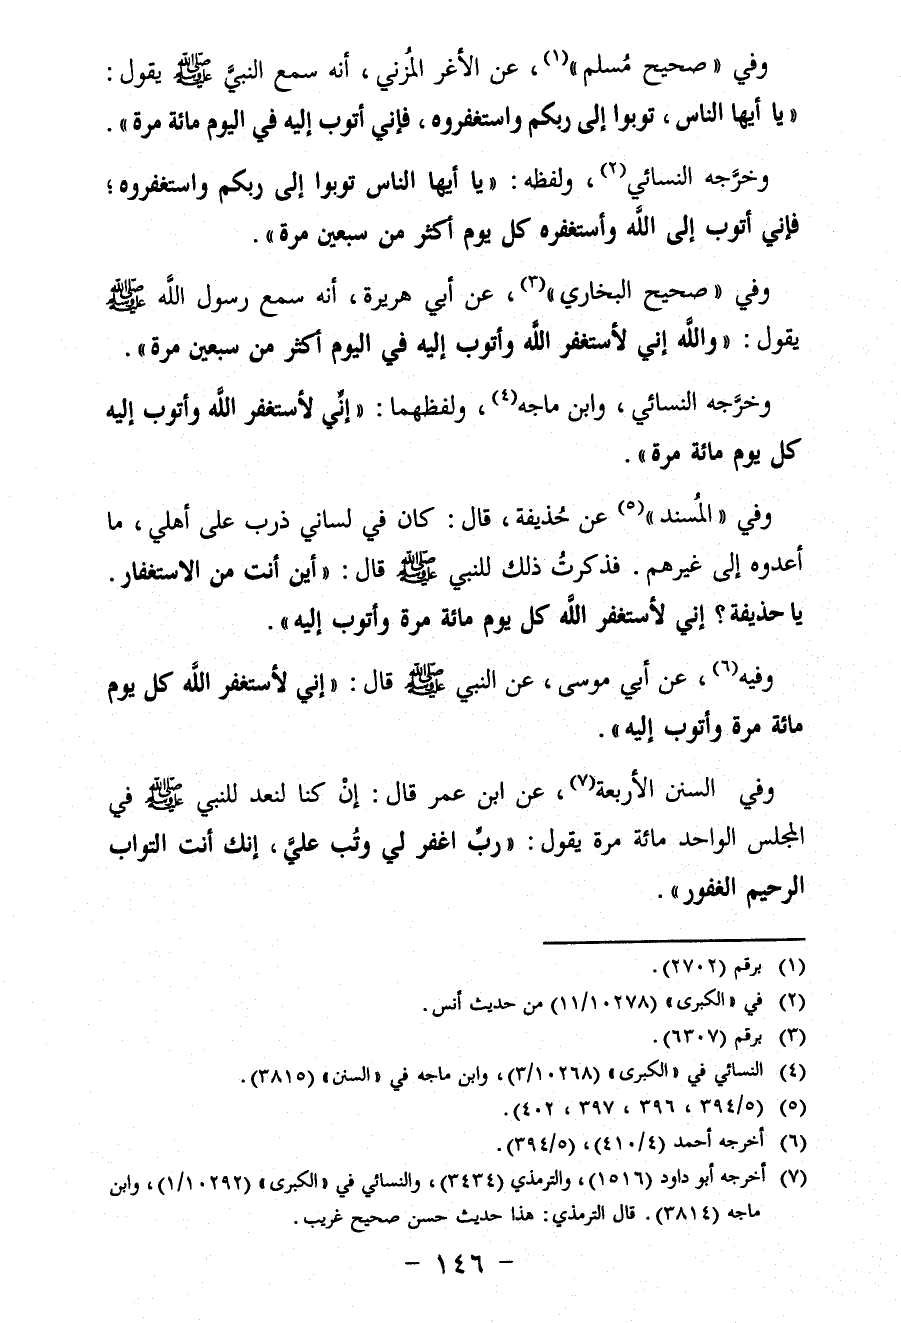 وفي « صحيح مُسلم »(١) ، عن الأغر المُزني ، أنه سمع النبيَّ ﷺ يقول :
« يا أيها الناس ، توبوا إلى ربكم واستغفروه ، فإني أتوب إليه في اليوم مائة مرة » .
وخرَّجه النسائي(٢) ، ولفظه : « يا أيها الناس توبوا إلى ربكم واستغفروه ؛
فإني أتوب إلى اللَّه وأستغفره كل يوم أكثر من سبعين مرة » .
وفي « صحيح البخاري »(٣) ، عن أبي هريرة ، أنه سمع رسول اللَّه ﷺ
يقول : « واللَّه إني لأستغفر اللَّه وأتوب إليه في اليوم أكثر من سبعين مرة » .
وخرَّجه النسائي ، وابن ماجه(٤) ، ولفظهما : « إنِّي لأستغفر اللَّه وأتوب إليه
كل يوم مائة مرة » .
وفي « المُسند »(٥) عن حُذيفة ، قال : كان في لساني ذرب على أهلي ، ما
أعدوه إلى غيرهم . فذكرتُ ذلك للنبي ﷺ قال : « أين أنت من الاستغفار .
يا حذيفة ؟ إني لأستغفر اللَّه كل يوم مائة مرة وأتوب إليه » .
وفيه(٦) ، عن أبي موسى ، عن النبي ﷺ قال : « إني لأستغفر اللَّه كل يوم
مائة مرة وأتوب إليه » .
وفي السنن الأربعة(٧) ، عن ابن عمر قال : إنْ كنا لنعد للنبي ﷺ في
المجلس الواحد مائة مرة يقول : « ربِّ اغفر لي وتُب عليَّ ، إنك أنت التواب
الرحيم الغفور » .
(١) برقم (٢٧٠٢) .
(٢) في « الكبرى » (١١/١٠٢٧٨) من حديث أنس .
(٣) برقم (٦٣٠٧) .
(٤) النسائي في « الكبرى » (٣/١٠٢٦٨) ، وابن ماجه في « السنن » (٣٨١٥) .
(٥) (٣٩٤/٥ ، ٣٩٦ ، ٣٩٧ ، ٤٠٢) .
(٦) أخرجه أحمد (٤١٠/٤) ، (٣٩٤/٥) .
(٧) أخرجه أبو داود (١٥١٦) ، والترمذي (٣٤٣٤) ، والنسائي في « الكبرى » (١/١٠٢٩٢) ، وابن
ماجه (٣٨١٤) . قال الترمذي : هذا حديث حسن صحيح غريب .
– ١٤٦ –